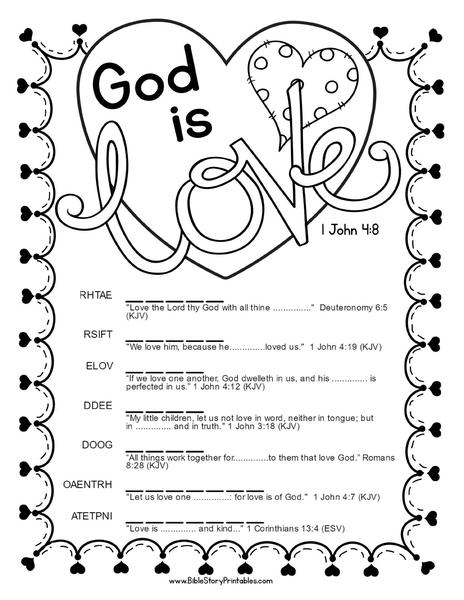 God
is
Love
1 John 4:8
RHTAE _ _ _ _ _
"Love the Lord thy God with all thine ..............." Deuteronomy 6:5
(KJV)
RSIFT _ _ _ _ _
"We love him, because he.............loved us." 1 John 4:19 (KJV)
ELOV _ _ _ _
"If we love one another, God dwelleth in us, and his ............. is
perfected in us." 1 John 4:12 (KJV)
DDEE _ _ _ _
"My little children, let us not love in word, neither in tongue; but
in ............. and in truth." 1 John 3:18 (KJV)
DOOG _ _ _ _
"All things work together for.............to them that love God." Romans
8:28 (KJV)
OAENTRH _ _ _ _ _ _ _
"Let us love one .............: for love is of God." 1 John 4:7 (KJV)
ATETPNI _ _ _ _ _ _ _
"Love is ............. and kind..." 1 Corinthians 13:4 (ESV)
www.BibleStoryPrintables.com